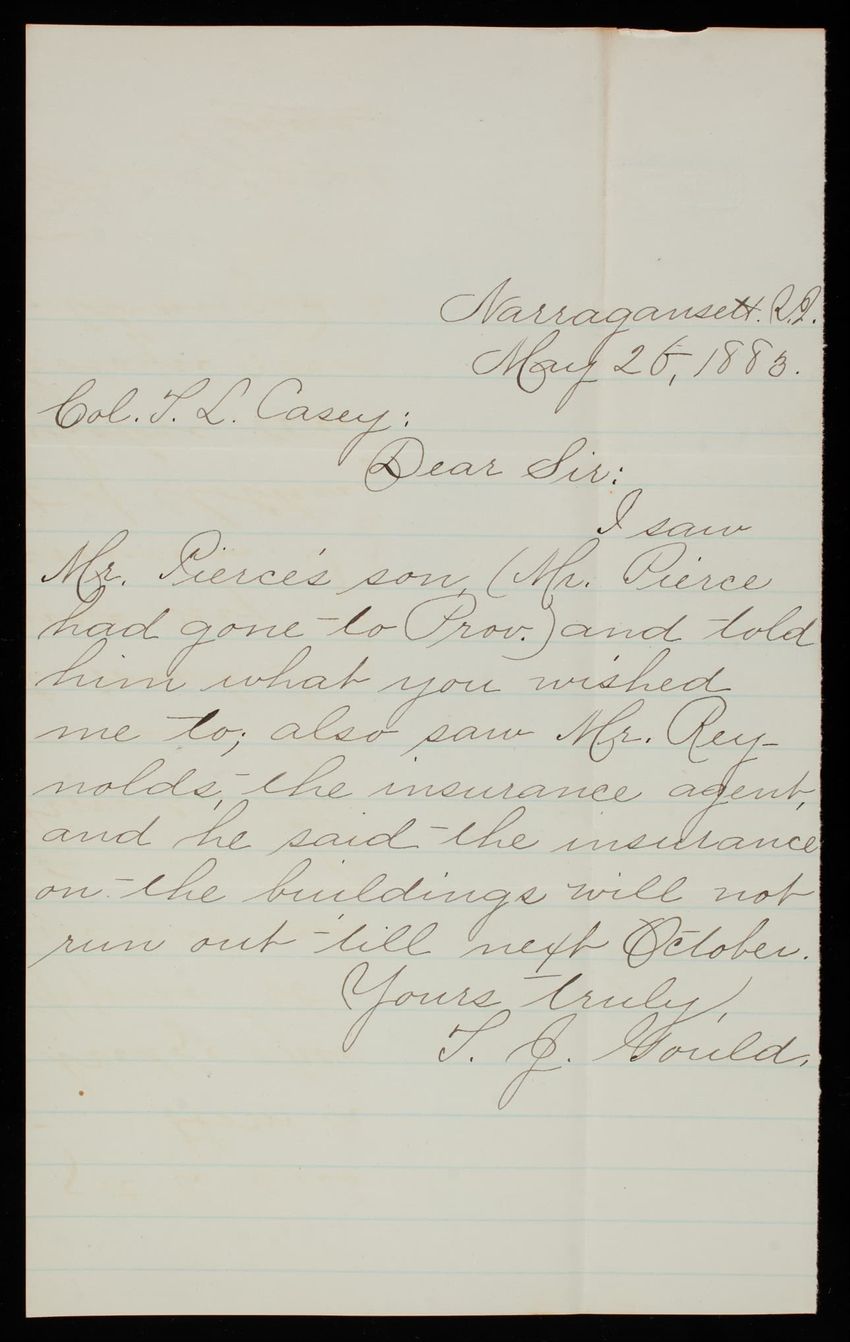 Narragansett. R.I.
May 25, 1883.
Col. T. L. Casey:
Dear Sir:
I saw
Mr. Pierce's son, (Mr. Pierce
had gone to Prov.) and told
him what you wished
me to; also saw Mr. Rey-
nolds, the insurance agent,
and he said the insurance
on the buildings will not
run out till next October.
Yours truly,
T. J. Gould.